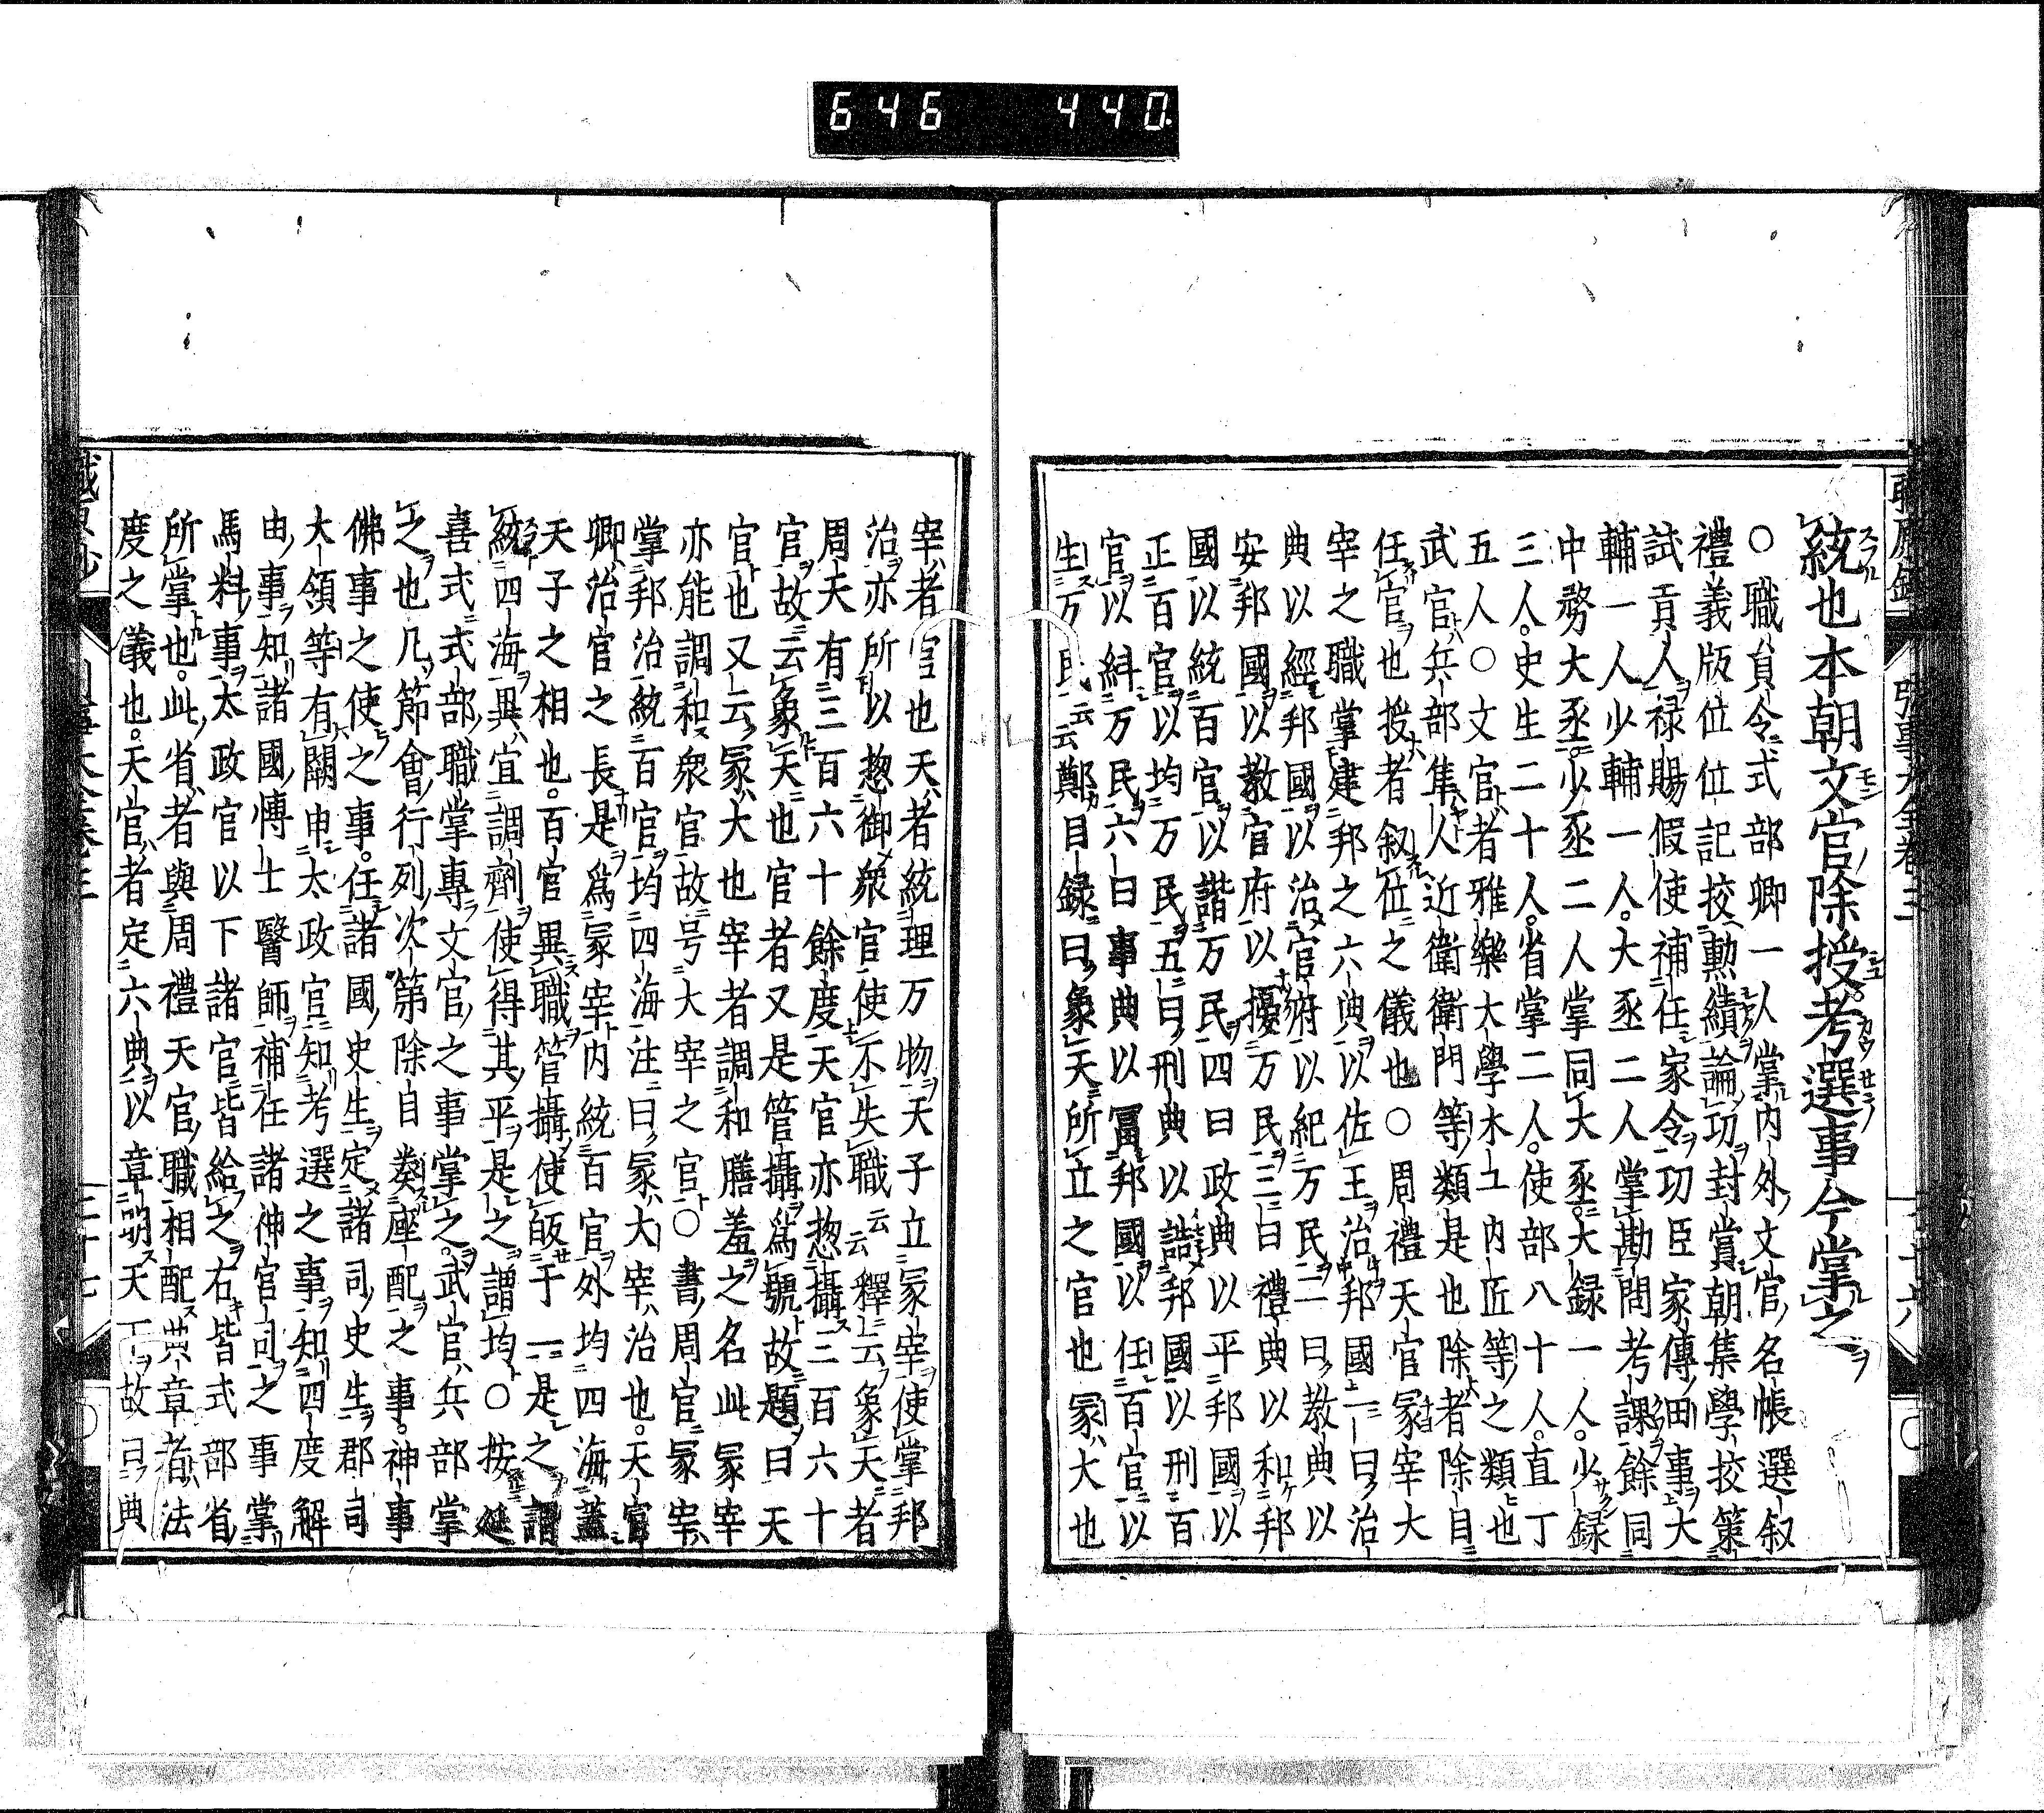 646 440
統也本朝文官除授考選事今掌之
○職員令式部卿一人掌內外文官名帳選叙
禮義版位位記挍勲績論功封賞朝集學挍策
試貢人禄賜假使補任家令功臣家傳田事大
輔一人少輔一人大丞二人掌勘問考課餘同
中務大丞少丞二人掌同大丞大録一人少録
三人史生二十人省掌二人使部八十人直丁
五人○文官者雅樂大學木工內匠等之類也
武官兵部隼人近衛衛門等類是也除者除自
任官也授者叙位之儀也○周禮天官冢宰大
宰之職掌建邦之六典以佐王治邦國一曰治
典以經邦國以治官府以紀万民二曰教典以
安邦國以教官府以擾万民三曰禮典以和邦
國以統百官以諧万民四曰政典以平邦國以
正百官以均万民五曰刑典以詰邦國以刑百
官以糾万民六曰事典以冨邦國以任百官以
生万民云云鄭目録曰象天所立之官也冢大也
宰者官也天者統理万物天子立冢宰使掌邦
治亦所以惣御衆官使不失職云云釋云象天者
周天有三百六十餘度天官亦惣攝三百六十
官故云象天也官者又是管攝爲號故題曰天
官也又云冢大也宰者調和膳羞之名此冢宰
亦能調和衆官故号大宰之官○書周官冢宰
掌邦治統百官均四海注曰冢大宰治也天官
卿治官之長是爲冢宰內統百官外均四海蓋
天子之相也百官異職管攝使皈于一是之謂
統四海異宜調劑使得其平是之謂均○按延
喜式式部職掌專文官之事掌之武官兵部掌
之也凢節會行列次第除自奏座配之事神事
佛事之使之事任諸國史生定諸司史生郡司
大領等有闕申太政官知考選之事知四度解
由事知諸國博士醫師補任諸神官司之事掌
馬料事太政官以下諸官皆給之右皆式部省
所掌也此省者與周禮天官職相配典章者法
度之儀也天官者定六典以章明天下故曰典